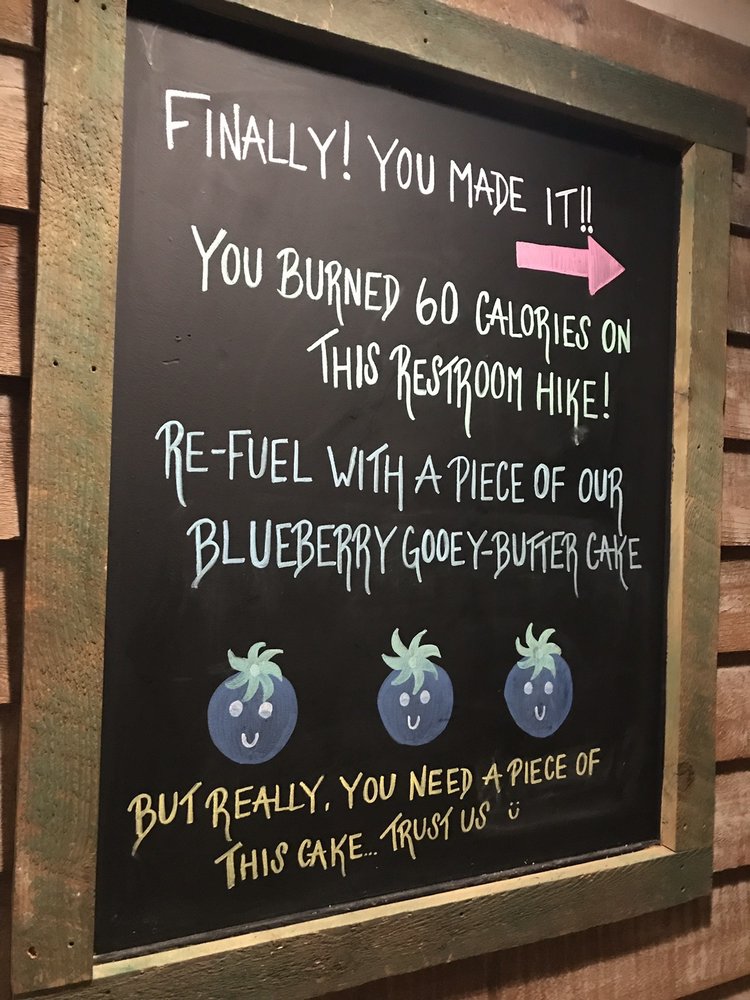 FINALLY! YOU MADE IT!!
YOU BURNED 60 CALORIES ON
THIS RESTROOM HIKE!
RE-FUEL WITH A PIECE OF OUR
BLUEBERRY GOOEY-BUTTER CAKE
BUT REALLY, YOU NEED A PIECE OF
THIS CAKE... TRUST US Ü